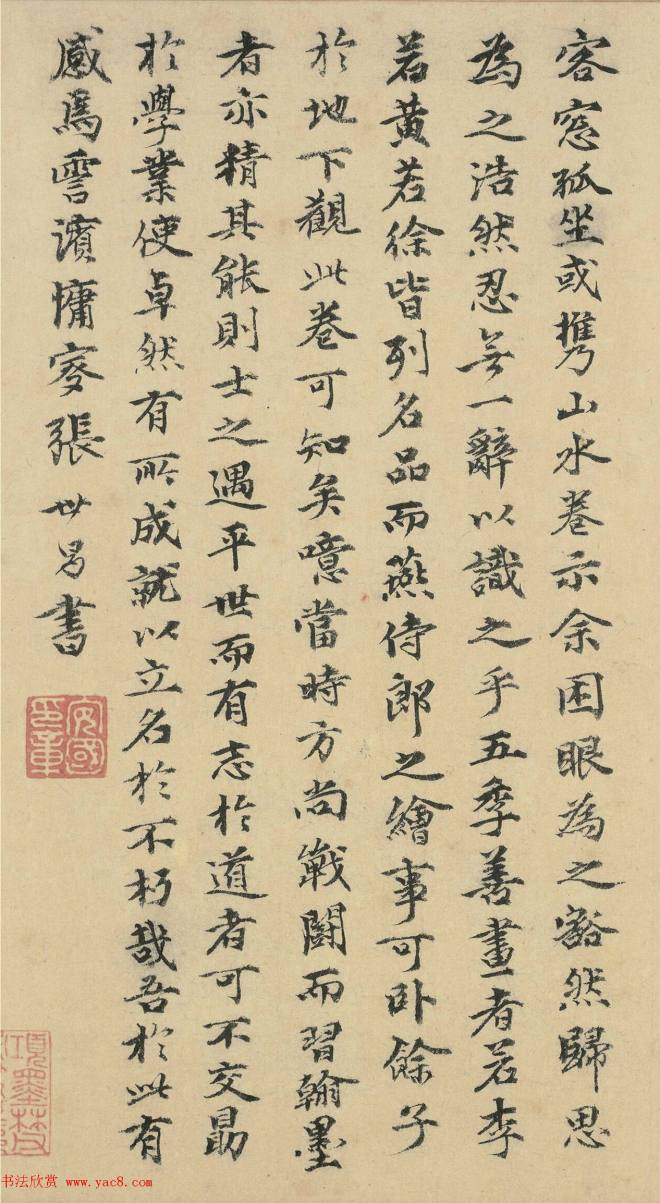 客窓孤坐或携山水卷示余困眼為之豁然歸思
為之浩然忍無一辭以識之乎五季善畫者若李
若黃若徐皆列名品而燕侍郎之繪事可卧餘子
於地下觀此卷可知矣噫當時方尚戰鬪而習翰墨
者亦精其能則士之遇平世而有志於道者可不交勗
於學業使卓然有所成就以立名於不朽哉吾於此有
感焉雪濱慵叟張世昌書
安國印章
項墨林
书法欣赏 www.yac8.com